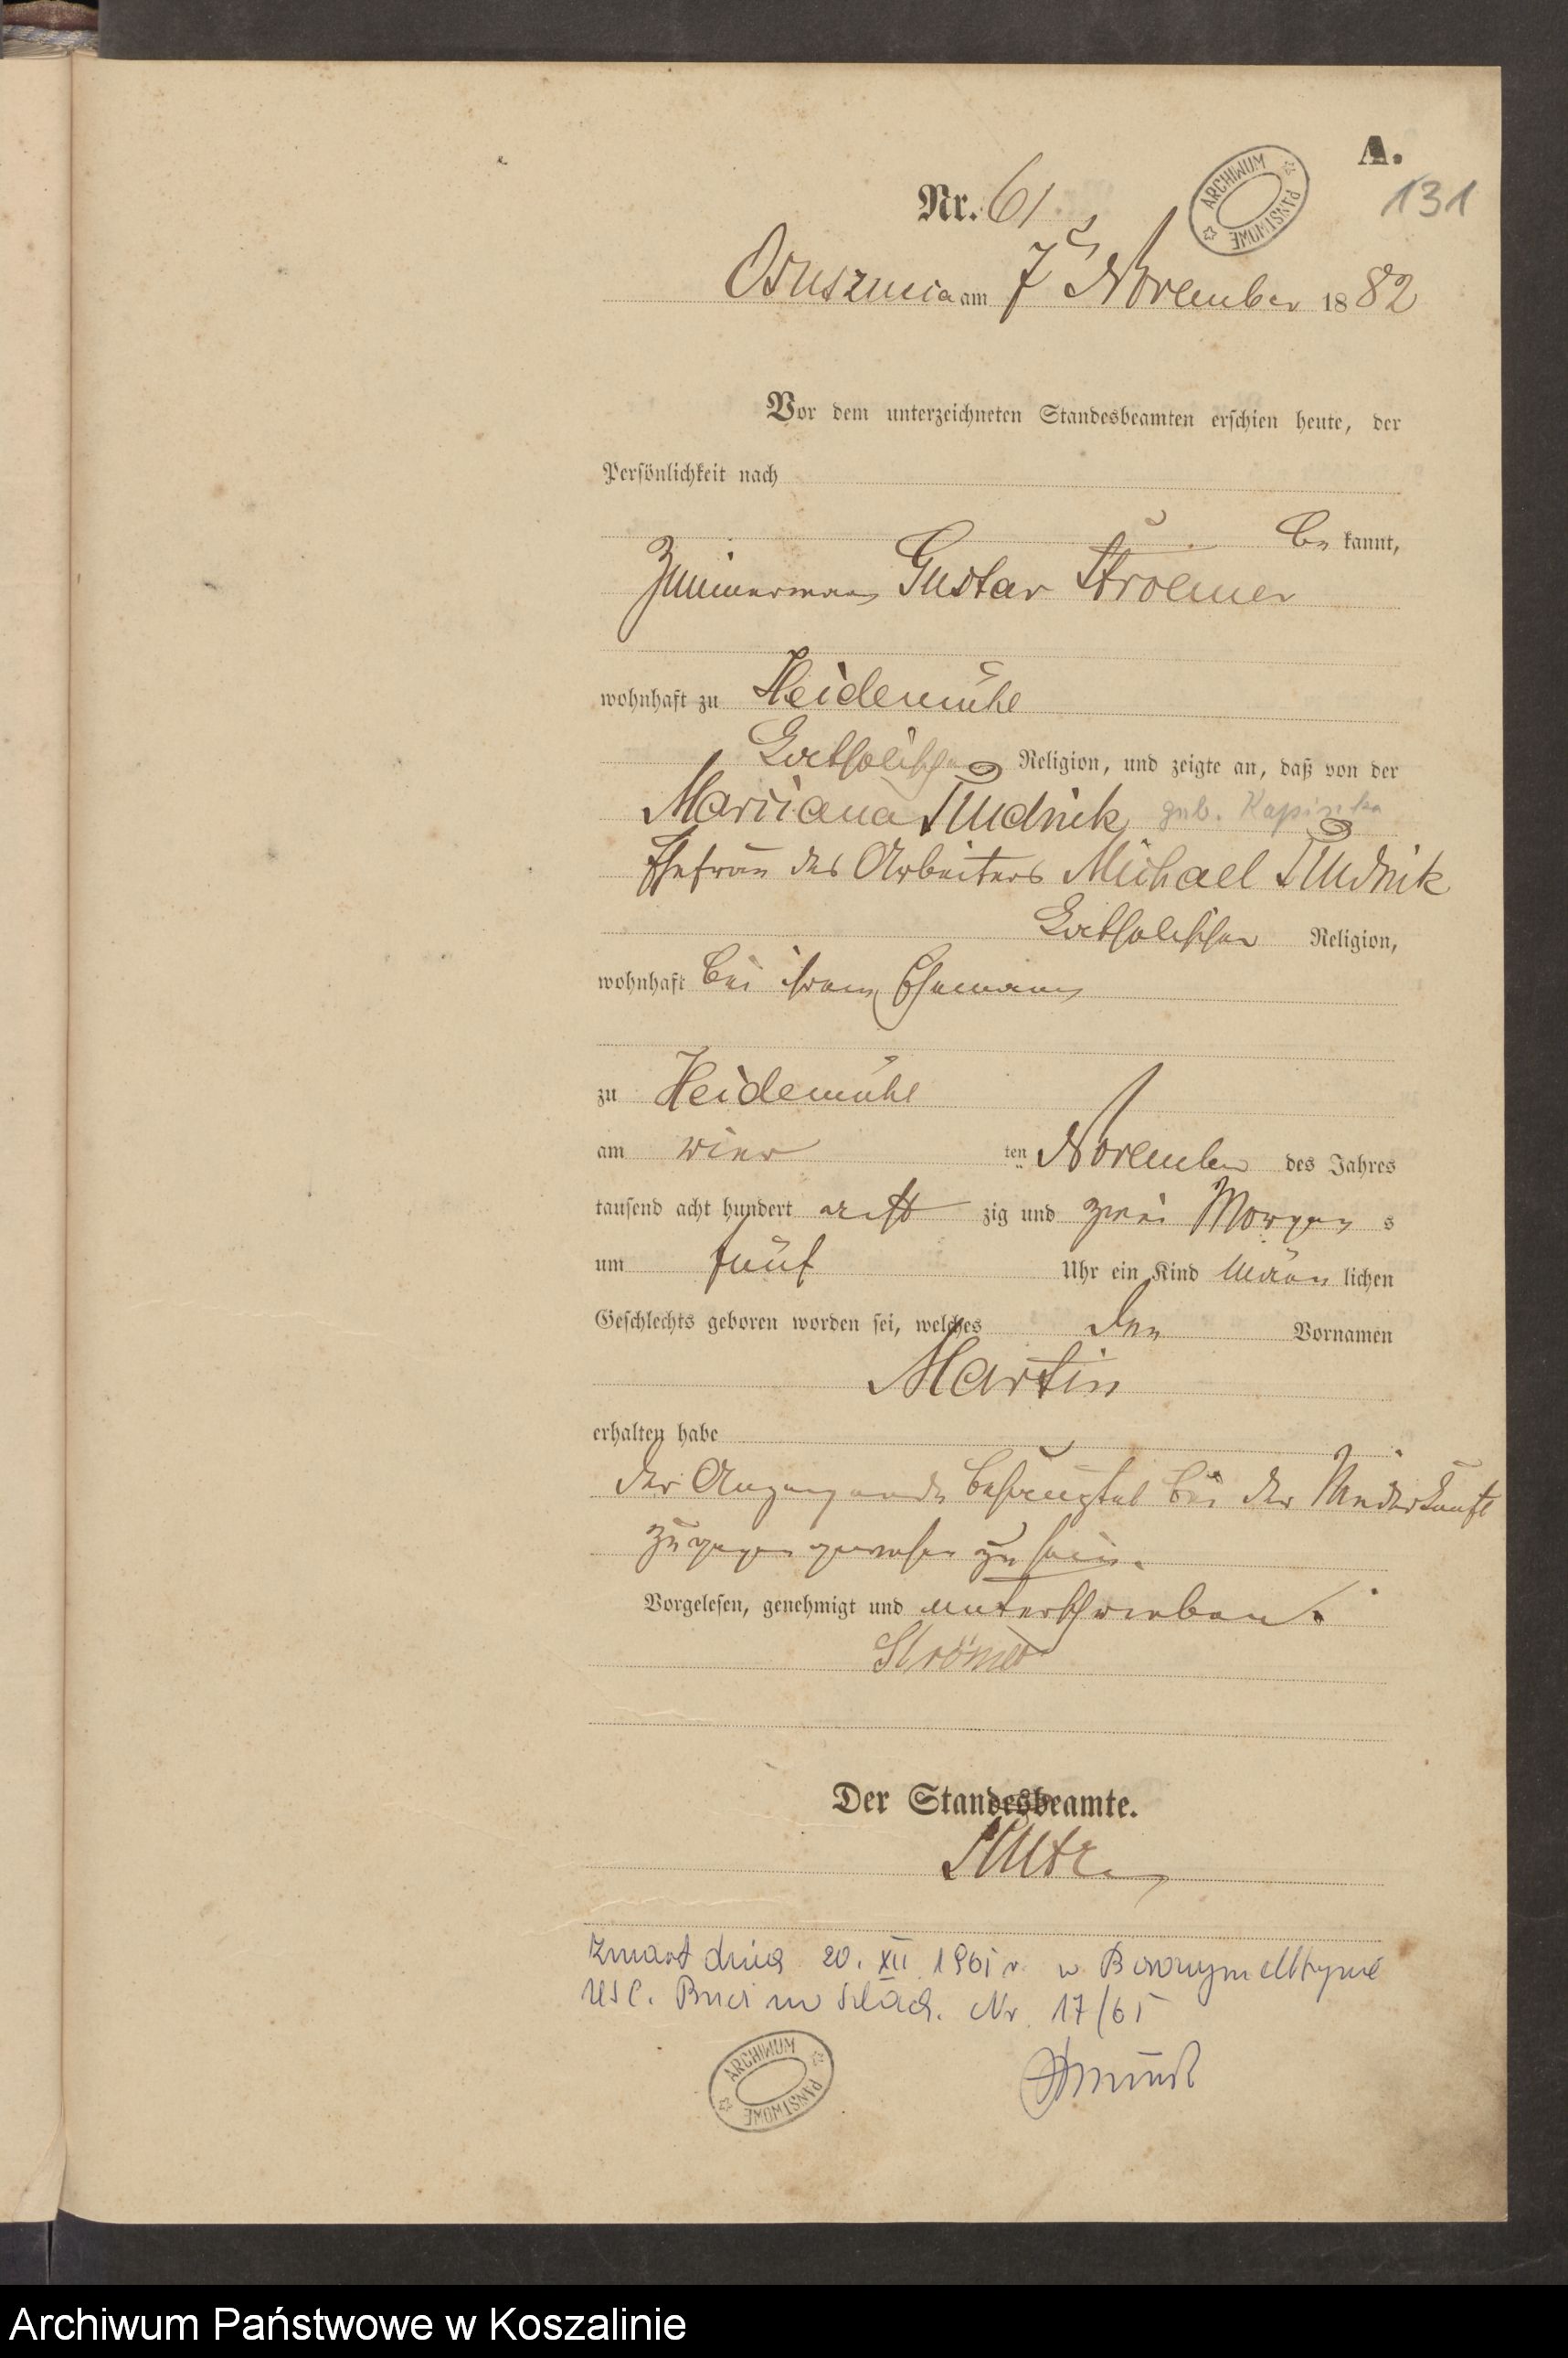 A.
131
Nr. 61
ARCHIWUM PAŃSTWOWE
Osuszniea am 7 November 1882
Vor dem unterzeichneten Standesbeamten erschien heute, der
Persönlichkeit nach
be kannt,
Zimmermann Gustav Stroemer
wohnhaft zu Heidemühl
katholischer Religion, und zeigte an, daß von der
Marianna Rudnik geb. Kapinska
Ehefrau des Arbeiters Michael Rudnik
katholischer Religion,
wohnhaft bei ihrem Ehemann
zu Heidemühl
am vier ten November des Jahres
tausend acht hundert acht zig und zwei Morgen s
um fünf Uhr ein Kind männ lichen
Geschlechts geboren worden sei, welches den Vornamen
Martin
erhalten habe
der Anzeigende bezeugte bei der Niederkunft
zugegen gewesen zu sein.
Vorgelesen, genehmigt und unterschrieben.
Strömer
Der Standesbeamte.
Zmarł dnia 20. XII 1961 r. w
USC. Nr. 17/61
ARCHIWUM PAŃSTWOWE
Archiwum Państwowe w Koszalinie